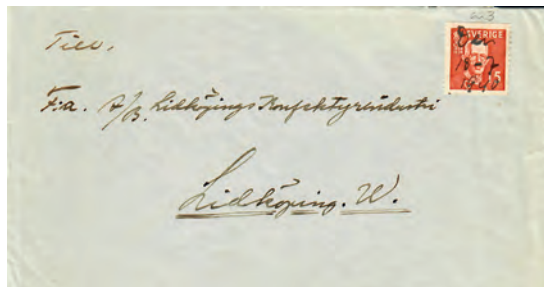 223
SVERIGE
Den
18-7
1940
15
Till.
F:a. A/B. Lidköpings Konfektyrindustri
Lidköping. W.